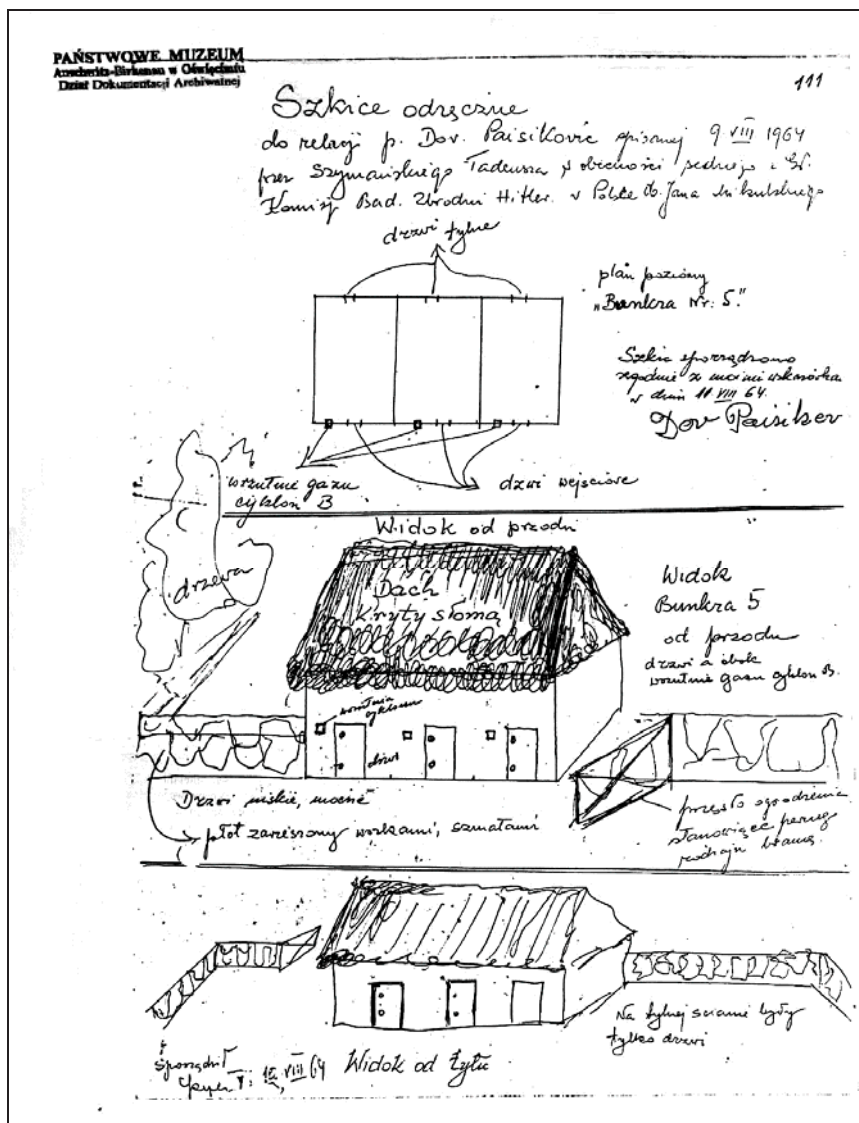 PAŃSTWOWE MUZEUM
Auschwitz-Birkenau w Oświęcimiu
Dział Dokumentacji Archiwalnej
111
Szkice odręczne
do relacji p. Dov. Paisikovic spisanej 9 VIII 1964
przez Szymańskiego Tadeusza w obecności sędziego z Gł.
Komisji Bad. Zbrodni Hitler. w Polsce Jana Mikulskiego
drzwi tylne
plan poziomy
"Bunkra Nr: 5."
Szkic sporządzono
zgodnie z moimi
w dniu 11 VIII 64.
Dov Paisiker
wrzutnie gazu
cyklon B
drzwi wejściowe
Widok od przodu
drzewa
Dach
kryty słomą
Widok
Bunkra 5
od przodu
drzwi a obok
wrzutnie gazu cyklon B.
wrzutnia
cyklonu
drzwi
Drzwi niskie, mocne
płot zawieszony workami, szmatami
przęsło ogrodzenia
stanowiące pewnego
rodzaju bramę.
Na tylnej ścianie były
tylko drzwi
Sporządził
VIII 64
Widok od tyłu